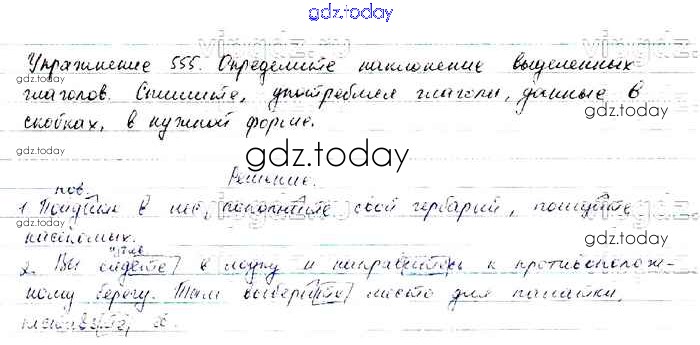 gdz.today
Упражнение 555. Определите наклонение выделенных
глаголов. Спишите, употребляя глаголы, данные в
скобках, в нужной форме.
gdz.today
gdz.today
gdz.today
Решение.
пов.
1. Пойдём в лес, пополните свой гербарий, поищите
gdz.today
насекомых.
gdz.today
2. Вы сядете в лодку и направитесь к противополож-
ному берегу. Там выберите место для палатки,
поставьте её.